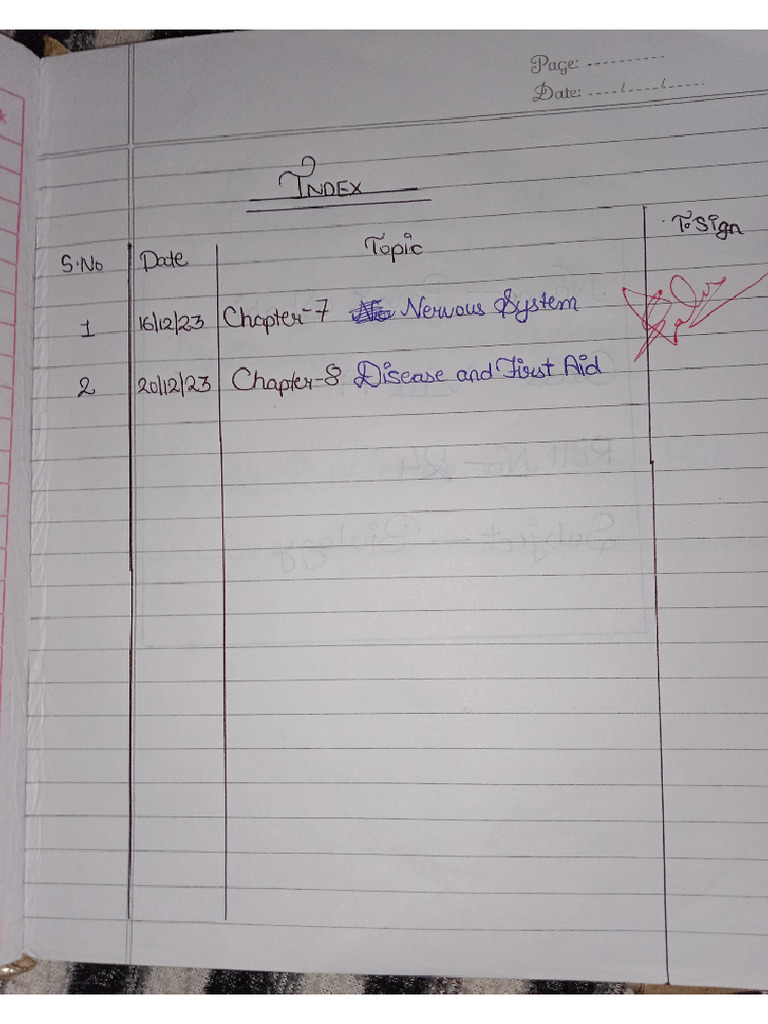 Page: ----------
Date: ----/----/----
INDEX
S.No Date Topic T. Sign
1 16/12/23 Chapter-7 Nervous System
2 20/12/23 Chapter-8 Disease and First Aid
Roll No - 24
Subject - Biology